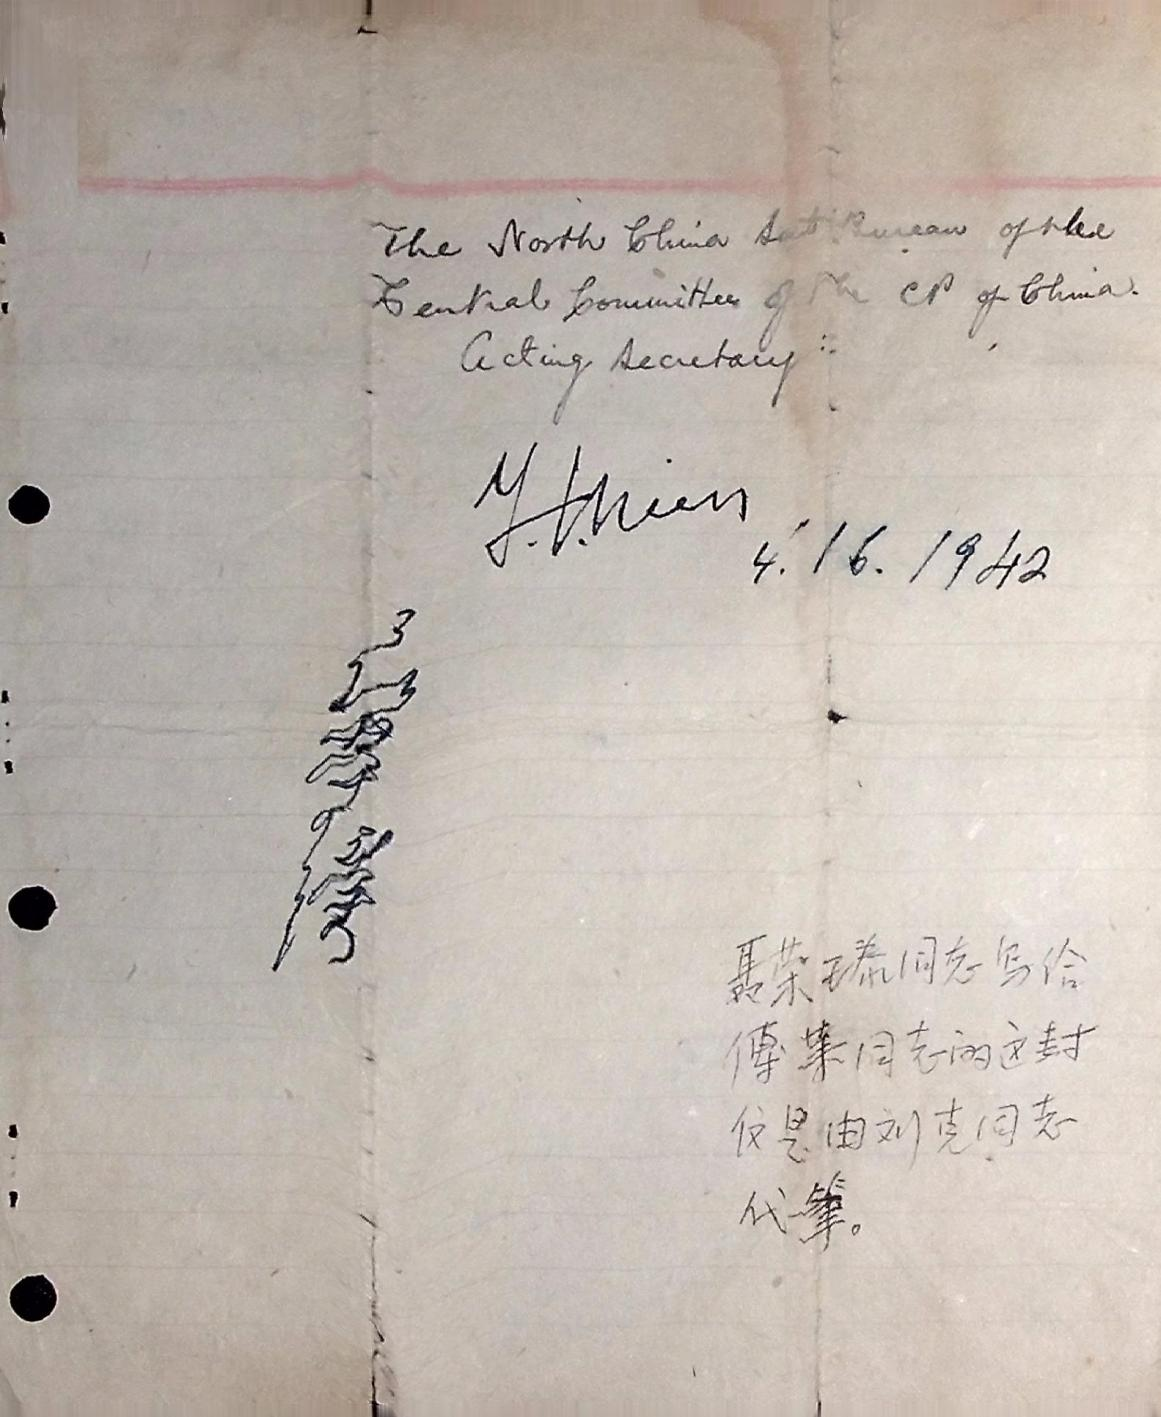 The North China Sub Bureau of the
Central Committee of the CP of China.
Acting Secretary:
4.16.1942
聂荣臻同志写给
傅莱同志的这封
仅是由刘克同志
代筆。